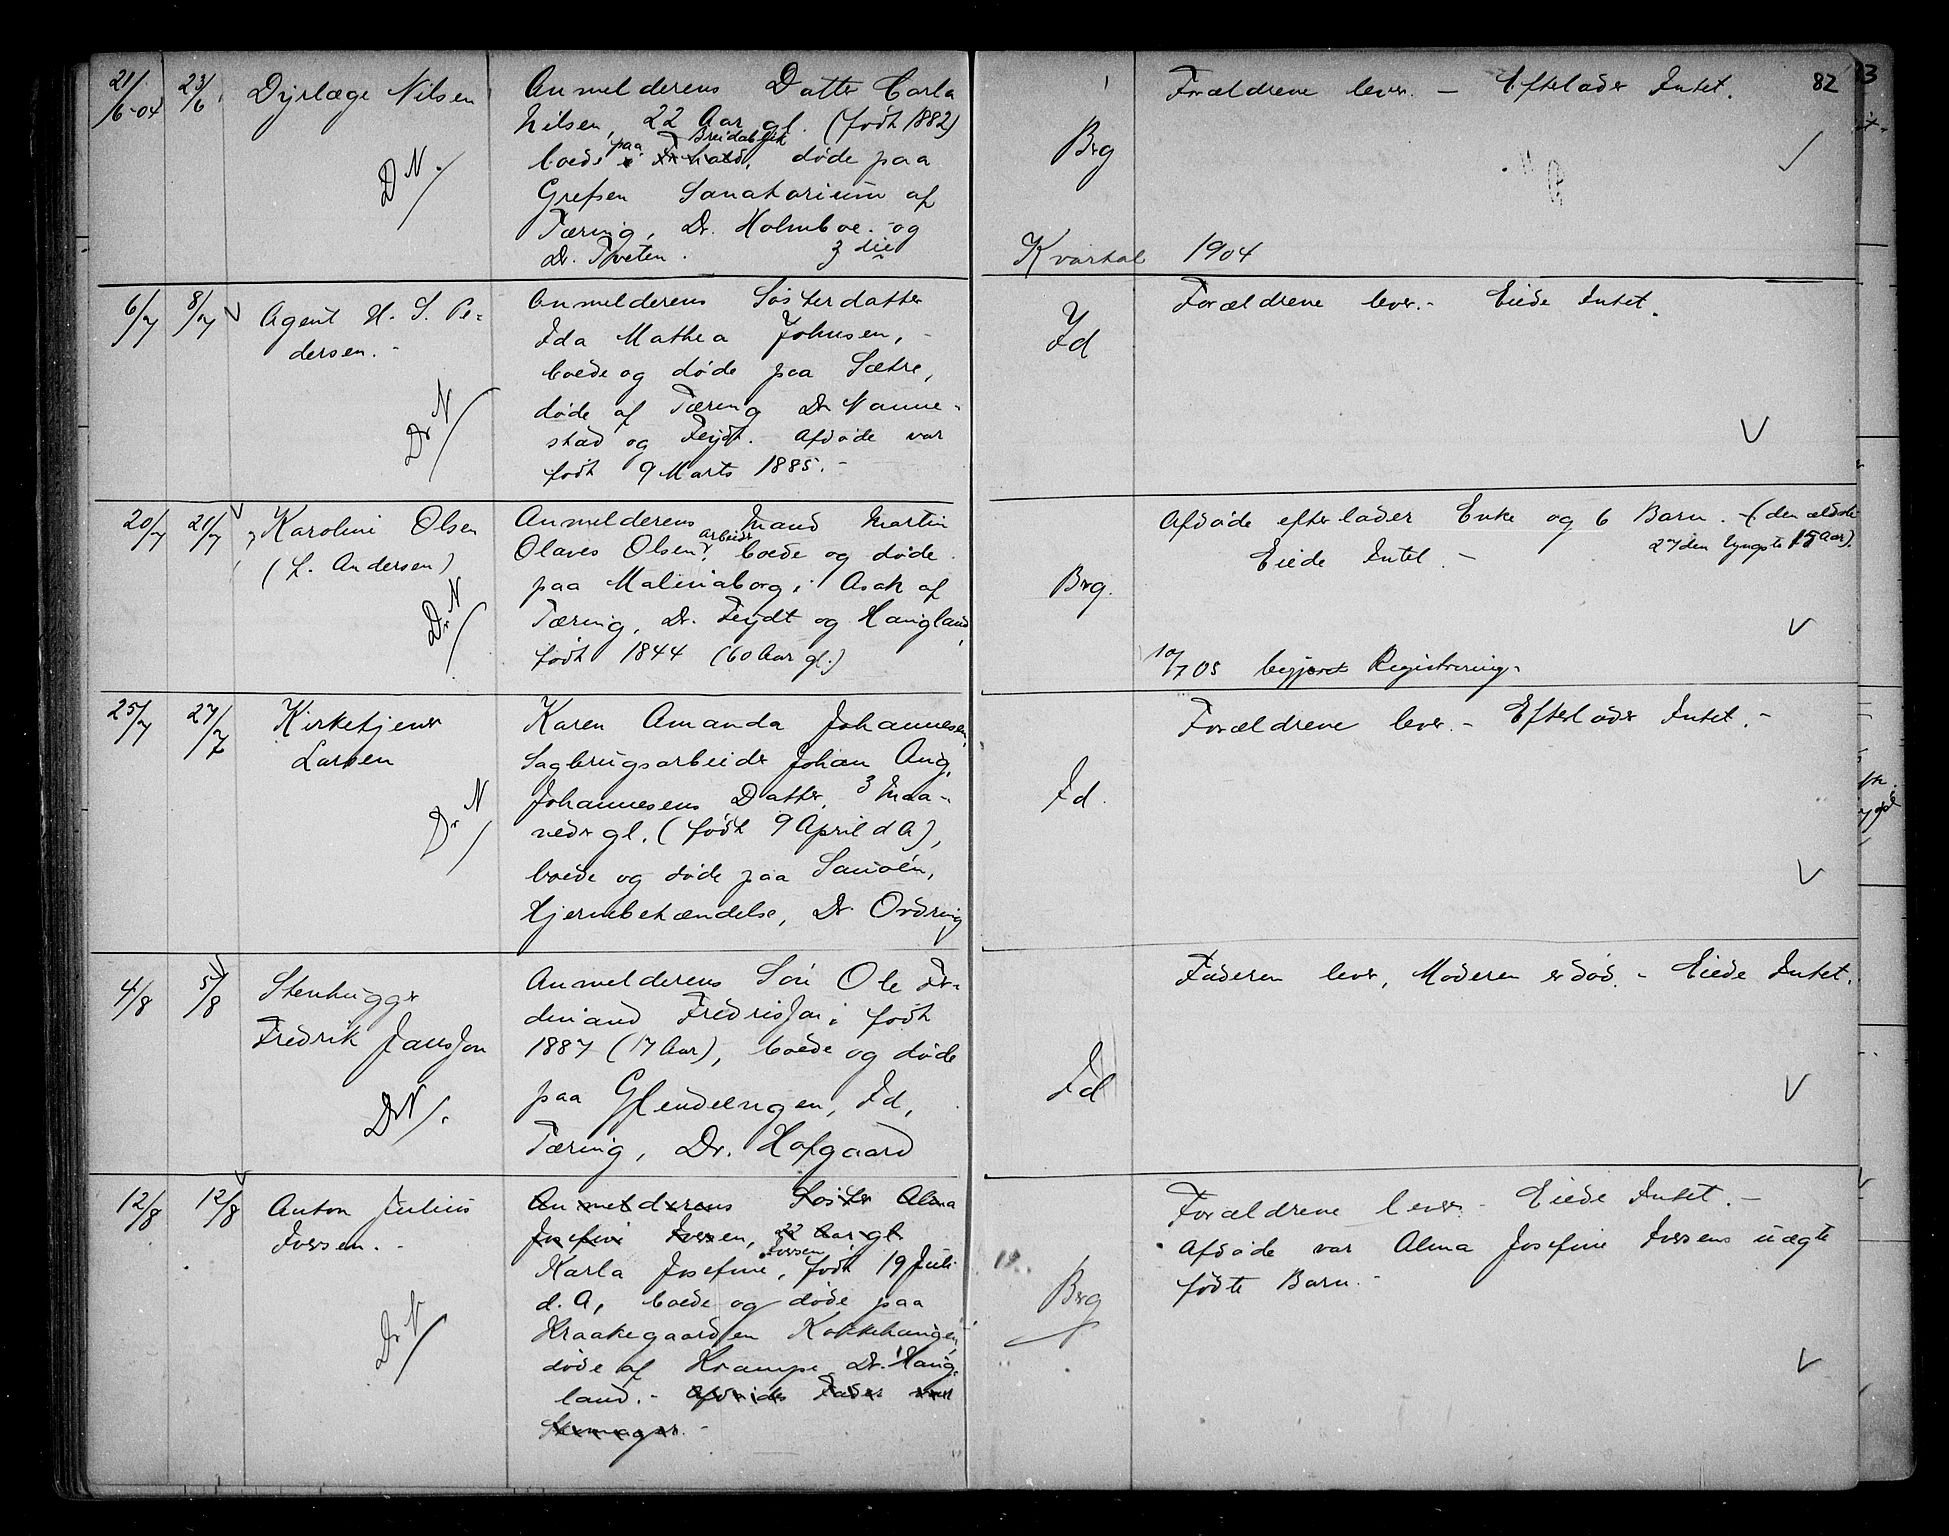 21/6-04 23/6 Dyrlæge Nilsen
D N.
Anmelderens Datter Carla
Nilsen, 22 Aar gl. (født 1882)
paa Breidablik
boede i Fr.hald, døde paa
Grefsen Sanatorium af
Tæring, Dr. Holmboe og
Dr. Tveten. 3die
Brg
Kvartal 1904
Forældrene lever. - Efterlader Intet.
82
6/7 8/7 Agent H. S. Pe-
dersen. -
Dr N
Anmelderens Søsterdatter
Ida Mathea Johnsen, -
boede og døde paa Sætre,
døde af Tæring Dr Nanne-
stad og Feydt. Afdøde var
født 9 Marts 1885. -
Id
Forældrene lever. - Eiede Intet.
20/7 21/7 Karoline Olsen
(L. Andersen)
Dr N
Anmelderens Mand Martin
arbeidr
Olaves Olsen, boede og døde
paa Maliniaborg i Asak af
Tæring, Dr. Feydt og Haugland,
født 1844 (60 Aar gl.)
Brg.
Afdøde efterlader Enke og 6 Barn. - (den ældste
27 den yngste 15 Aar).
Eiede Intet. -
10/7 05 begjæret Registrering.
25/7 27/7 Kirketjener
Larsen
Dr N
Karen Amanda Johannesen,
Sagbrugsarbeider Johan Aug.
Johannesens Datter, 3 Maa-
neder gl. (født 9 April d A),
boede og døde paa Sauøen,
Hjernebetændelse, Dr. Ording
Id.
Forældrene lever. - Efterlader Intet. -
4/8 5/8 Stenhugger
Fredrik Jansson
Dr N.
Anmelderens Søn Ole Fer-
dinand Fredrisson, født
1887 (17 Aar), boede og døde
paa Glenderagen, Id,
Tæring, Dr. Hofgaard
Id
Faderen lever, Moderen er død. - Eiede Intet.
12/8 12/8 Anton Julius
Iversen. -
Dr N
Anmelderens Søster Alma
Josefine Iversen, 22 Aar gl.
Iversen
Karla Josefine, født 19 Juli
d. A, boede og døde paa
Kraakegaarden Kokkehaugen,
døde af Krampe Dr. Haug-
land. - Afdødes Fader var
Skomager. -
Brg
Forældrene lever. - Eiede Intet. -
Afdøde var Alma Josefine Iversens uægte
fødte Barn. -